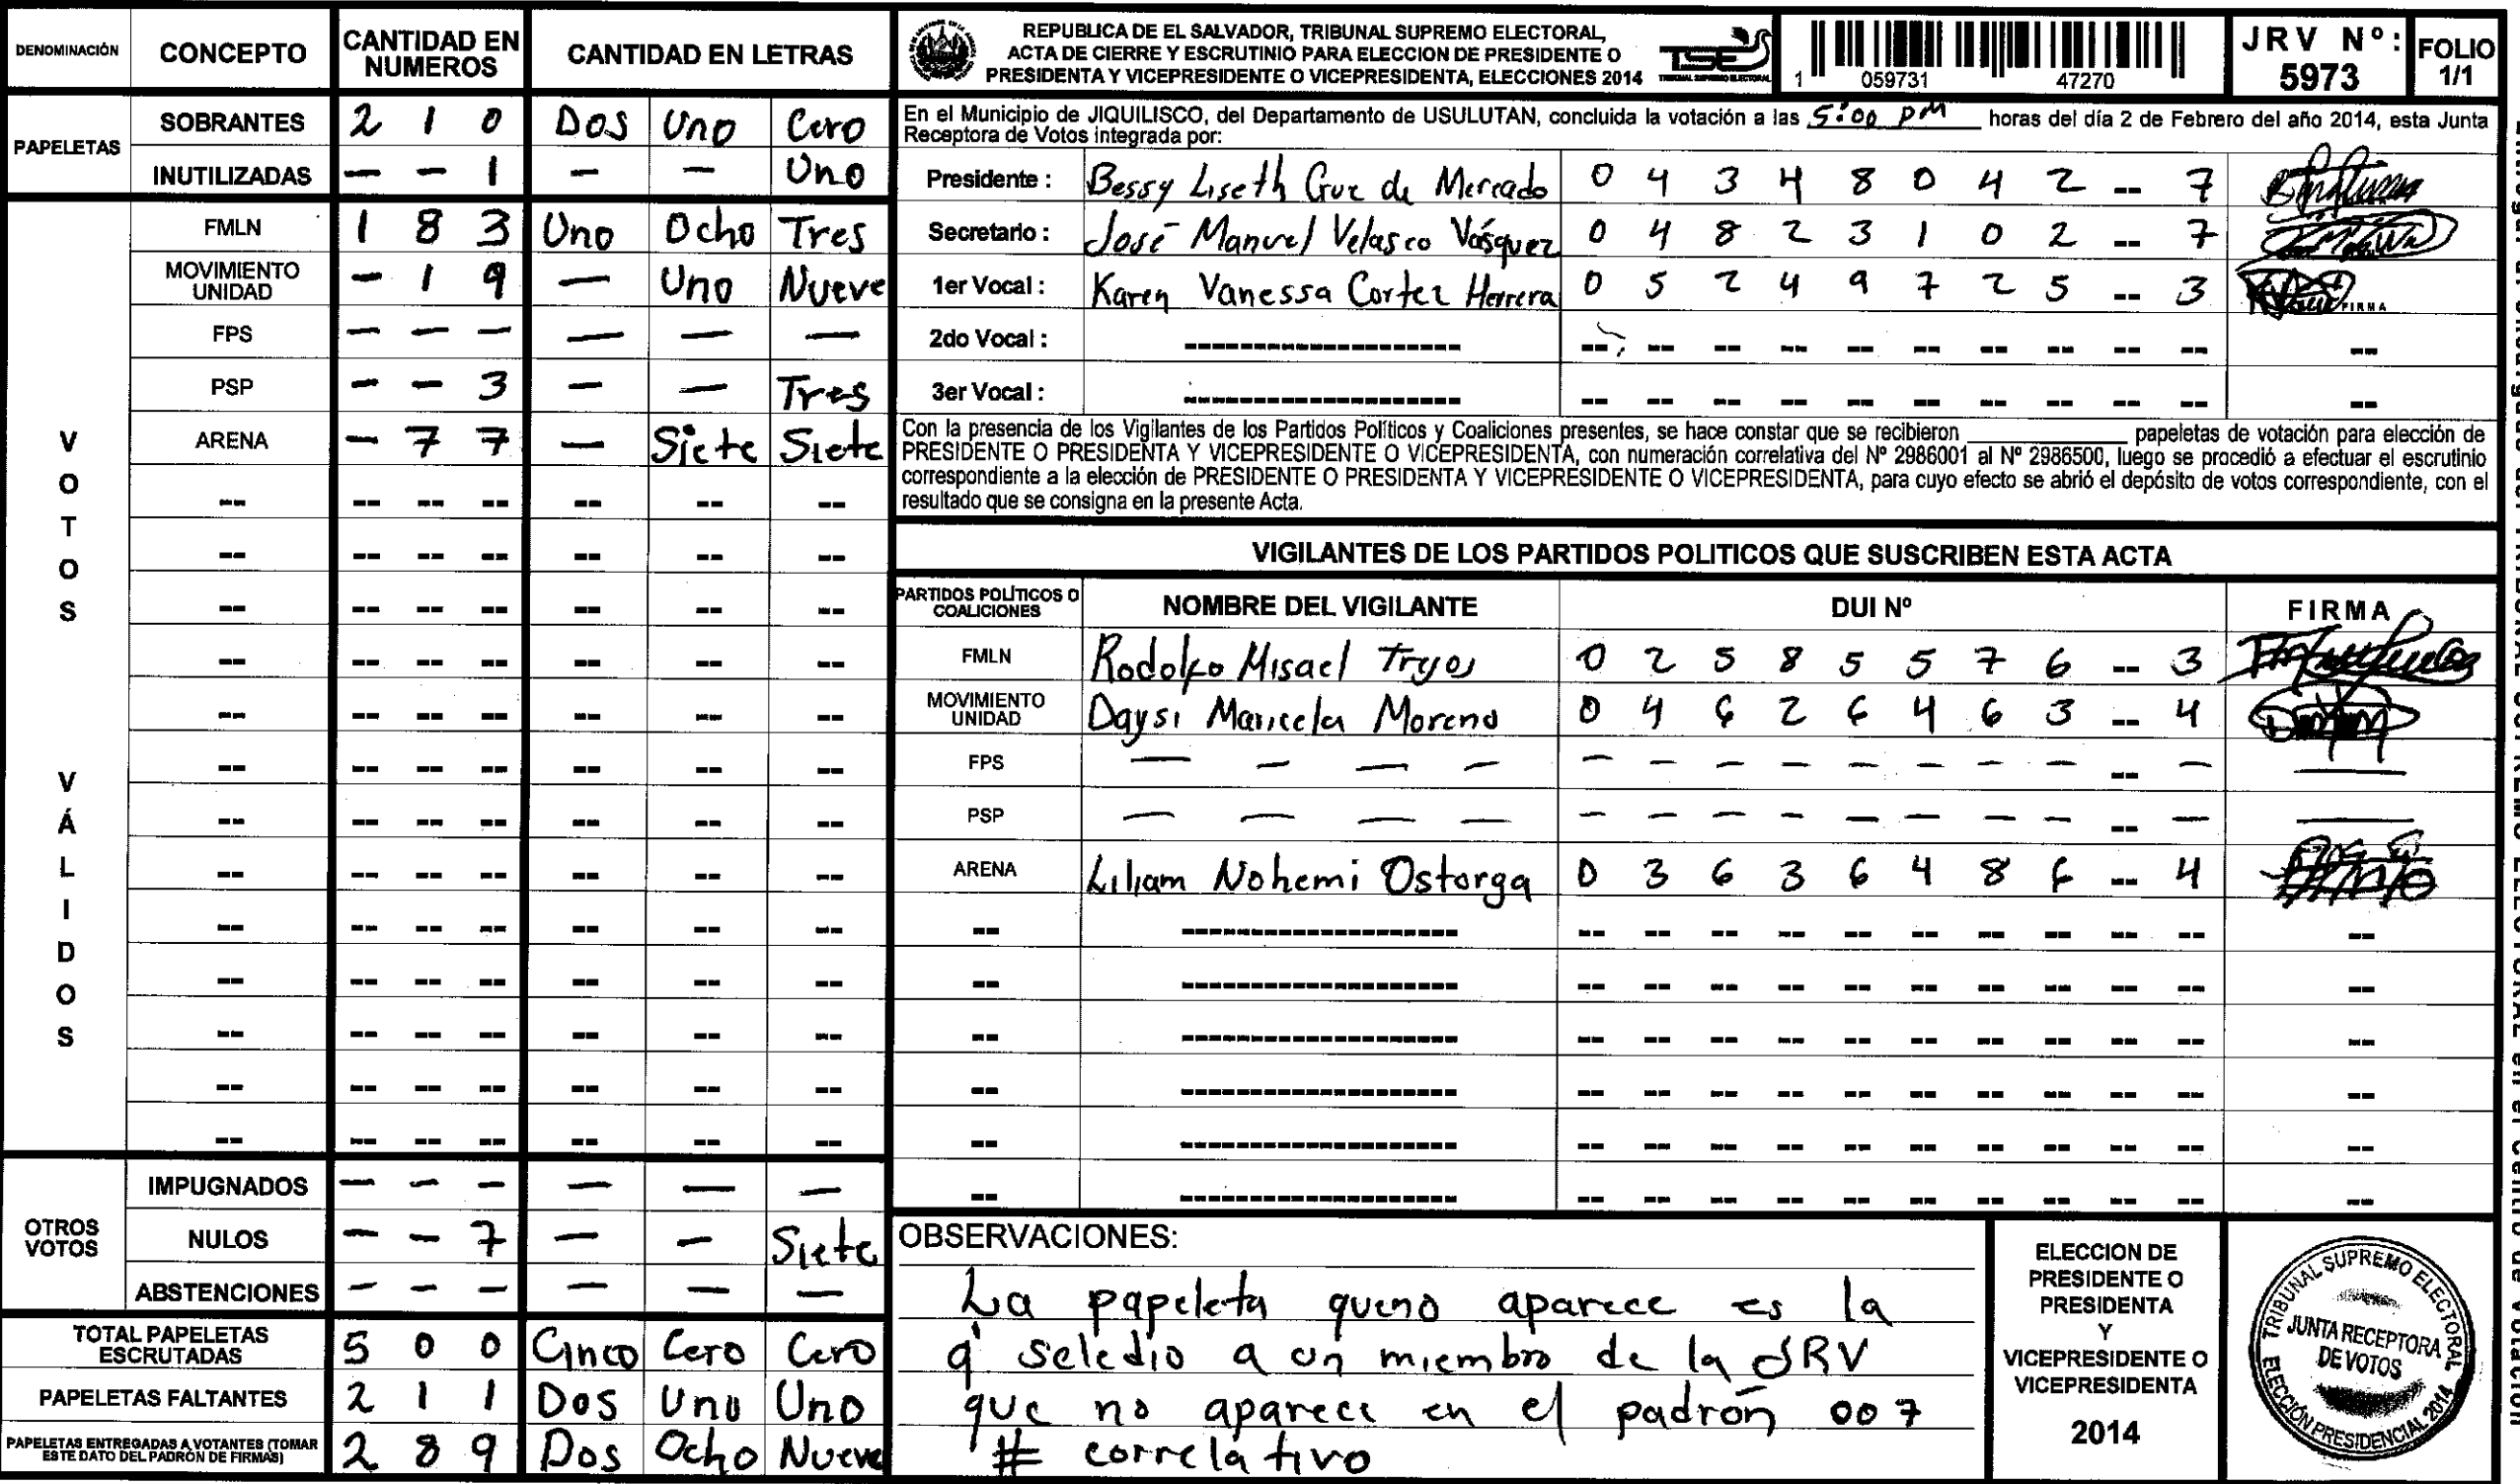 DENOMINACIÓN CONCEPTO CANTIDAD EN NUMEROS CANTIDAD EN LETRAS
PAPELETAS
SOBRANTES 2 1 0 Dos Uno Cero
INUTILIZADAS - - 1 - - Uno
VOTOS VÁLIDOS
FMLN 1 8 3 Uno Ocho Tres
MOVIMIENTO UNIDAD - 1 9 - Uno Nueve
FPS - - - - - -
PSP - - 3 - - Tres
ARENA - 7 7 - Siete Siete
OTROS VOTOS
IMPUGNADOS - - - - - -
NULOS - - 7 - - Siete
ABSTENCIONES - - - - - -
TOTAL PAPELETAS ESCRUTADAS 5 0 0 Cinco Cero Cero
PAPELETAS FALTANTES 2 1 1 Dos Uno Uno
PAPELETAS ENTREGADAS A VOTANTES (TOMAR ESTE DATO DEL PADRÓN DE FIRMAS) 2 8 9 Dos Ocho Nueve
REPUBLICA DE EL SALVADOR, TRIBUNAL SUPREMO ELECTORAL,
ACTA DE CIERRE Y ESCRUTINIO PARA ELECCION DE PRESIDENTE O
PRESIDENTA Y VICEPRESIDENTE O VICEPRESIDENTA, ELECCIONES 2014
TSE
TRIBUNAL SUPREMO ELECTORAL
1 059731 47270
JRV Nº: 5973
FOLIO 1/1
En el Municipio de JIQUILISCO, del Departamento de USULUTAN, concluida la votación a las 5:00 PM horas del día 2 de Febrero del año 2014, esta Junta
Receptora de Votos integrada por:
Presidente : Bessy Liseth Cruz de Mercado 0 4 3 4 8 0 4 2 -- 7
Secretario : José Manuel Velasco Vásquez 0 4 8 2 3 1 0 2 -- 7
1er Vocal : Karen Vanessa Cortez Herrera 0 5 2 4 9 7 2 5 -- 3 FIRMA
2do Vocal :
3er Vocal :
Con la presencia de los Vigilantes de los Partidos Políticos y Coaliciones presentes, se hace constar que se recibieron ____ papeletas de votación para elección de
PRESIDENTE O PRESIDENTA Y VICEPRESIDENTE O VICEPRESIDENTA, con numeración correlativa del Nº 2986001 al Nº 2986500, luego se procedió a efectuar el escrutinio
correspondiente a la elección de PRESIDENTE O PRESIDENTA Y VICEPRESIDENTE O VICEPRESIDENTA, para cuyo efecto se abrió el depósito de votos correspondiente, con el
resultado que se consigna en la presente Acta.
VIGILANTES DE LOS PARTIDOS POLITICOS QUE SUSCRIBEN ESTA ACTA
PARTIDOS POLÍTICOS O COALICIONES NOMBRE DEL VIGILANTE DUI Nº FIRMA
FMLN Rodolfo Misael Trejos 0 2 5 8 5 5 7 6 -- 3
MOVIMIENTO UNIDAD Daysi Maricela Moreno 0 4 6 2 6 4 6 3 -- 4
FPS
PSP
ARENA Liliam Nohemi Ostorga 0 3 6 3 6 4 8 6 -- 4
OBSERVACIONES:
La papeleta queno aparece es la
q' seledio a un miembro de la JRV
que no aparece en el padrón 007
# correlativo
ELECCION DE
PRESIDENTE O
PRESIDENTA
Y
VICEPRESIDENTE O
VICEPRESIDENTA
2014
TRIBUNAL SUPREMO ELECTORAL
JUNTA RECEPTORA
DE VOTOS
ELECCIÓN PRESIDENCIAL 2014